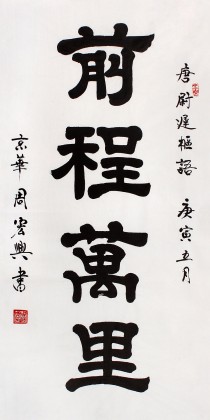 唐尉遲樞語 庚寅五月
前程萬里
京華周宏興書